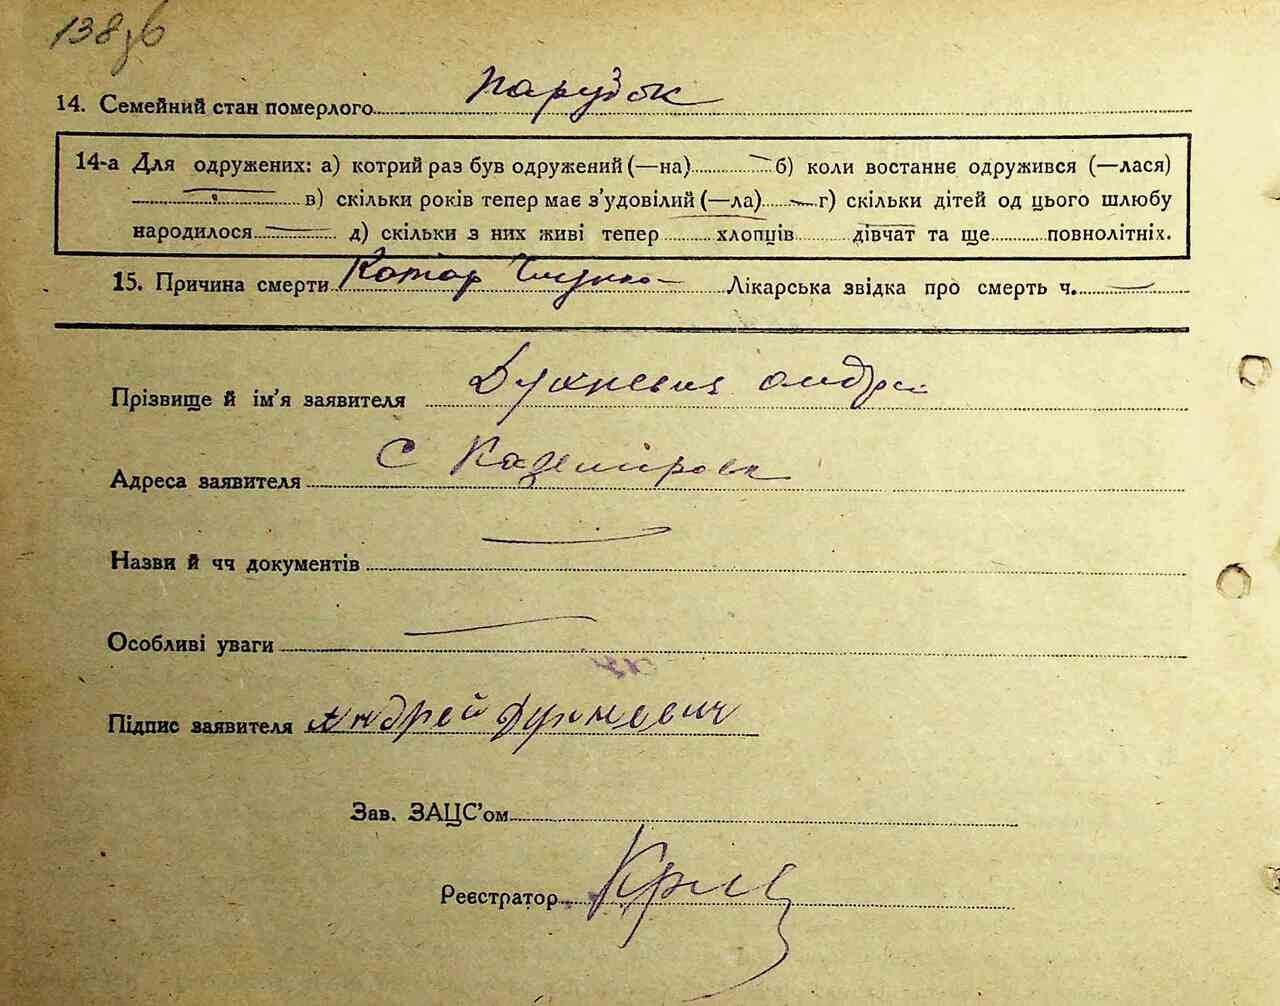 138зв
14. Семейний стан померлого парубок
14-а Для одружених: а) котрий раз був одружений (—на) б) коли востаннє одружився (—лася)
в) скільки років тепер має з'удовілий (—ла) г) скільки дітей од цього шлюбу
народилося д) скільки з них живі тепер хлопців дівчат та ще повнолітніх.
15. Причина смерти Катар Лікарська звідка про смерть ч.
Прізвище й ім'я заявителя
Адреса заявителя С
Назви й чч документів
Особливі уваги
Підпис заявителя Андрей
Зав. ЗАЦС'ом
Реєстратор